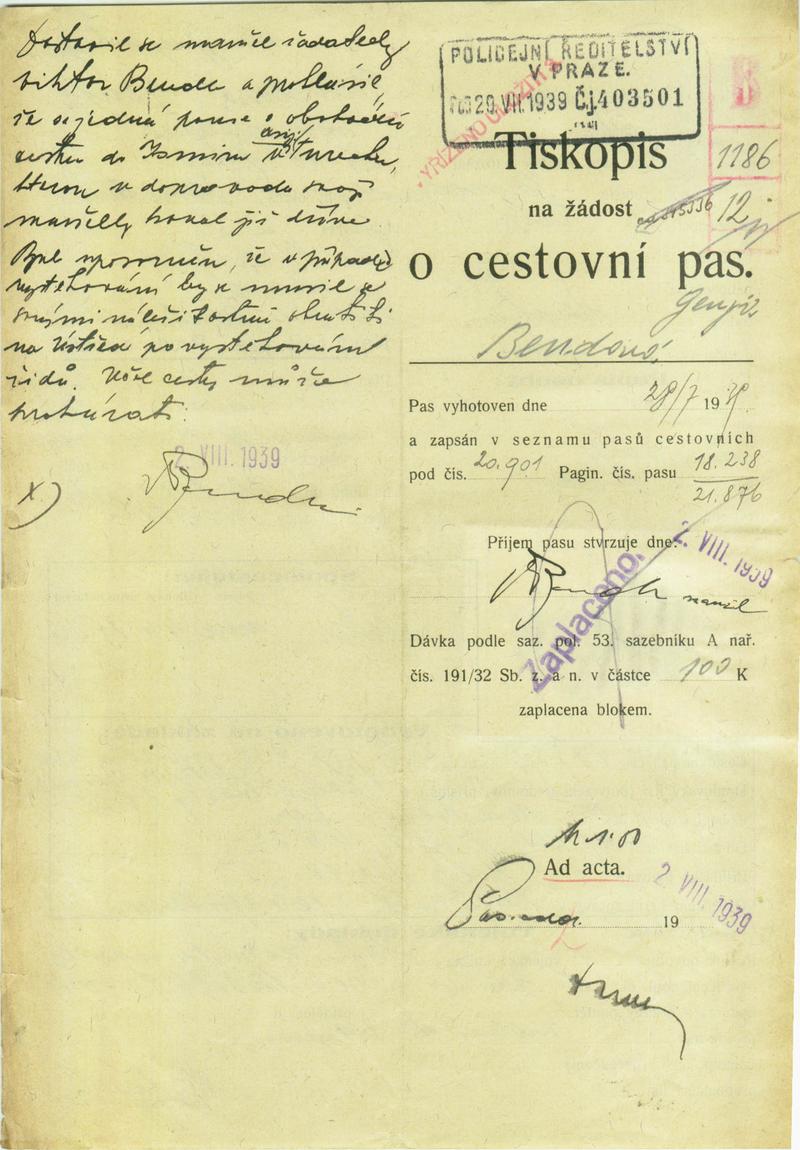 Dostavil se manžel žadatelky
Viktor Benda a prohlásil,
že se jedná pouze o obchodní
cestu do Izmiru v Turecku,
kterou v doprovodu své
manželky konal již dříve.
Byl upozorněn, že v případě
vystěhování by se musil se
svými náležitostmi obrátiti
na Ústřed. po vystěhování
židů. Účel cesty může
prokázati.
2 VIII. 1939
x) VBenda
POLICEJNÍ ŘEDITELSTVÍ
V PRAZE.
29. VII. 1939 Čj. 403501
Tiskopis
1186
na žádost
12
o cestovní pas.
Bendová
Pas vyhotoven dne 28/7 1939.
a zapsán v seznamu pasů cestovních
pod čís. 20.901 Pagin. čís. pasu 18.238
21.876
Příjem pasu stvrzuje dne: 2. VIII. 1939
VBenda manžel
Zaplaceno.
Dávka podle saz. pol. 53. sazebníku A nař.
čís. 191/32 Sb. z. a n. v částce 100 K
zaplacena blokem.
Ad acta.
2 VIII. 1939
19